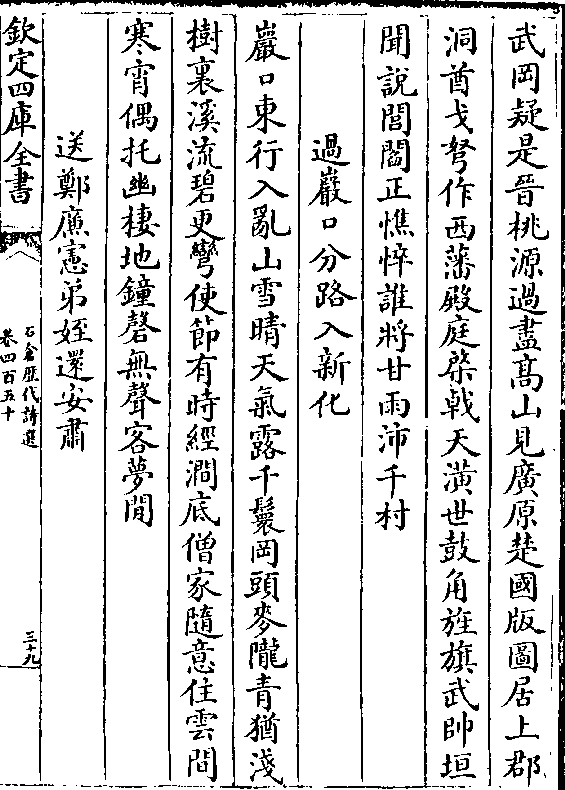 武岡疑是晉桃源過盡髙山見廣原楚國版圖居上郡
洞酋戈弩作西藩殿庭棨㦸天潢世鼓角旌旗武帥垣
聞說閭閻正憔悴誰將甘雨沛千村
過巖口分路入新化
巖口東行入亂山雪晴天氣露千鬟岡頭麥隴青猶淺
樹裏溪流碧更彎使節有時經澗底僧家隨意住雲間
寒宵偶托幽棲地鐘磬無聲客夢閒
送鄭廉憲弟姪還安肅
欽定四庫全書
石倉歷代詩選
卷四百五十
三十九